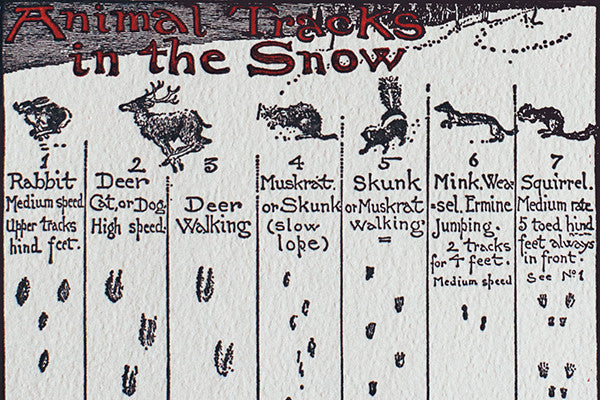 Animal Tracks
in the Snow
1
Rabbit
Medium speed
Upper tracks
hind feet.
2
Deer
Cat, or Dog
High speed.
3
Deer
Walking
4
Muskrat.
or Skunk
(slow
lope)
5
Skunk
or Muskrat
walking
=
6
Mink. Wea=
=sel. Ermine
Jumping.
2 tracks
for 4 feet.
Medium speed
7
Squirrel.
Medium rate
5 toed hind
feet always
in front.
See No 1